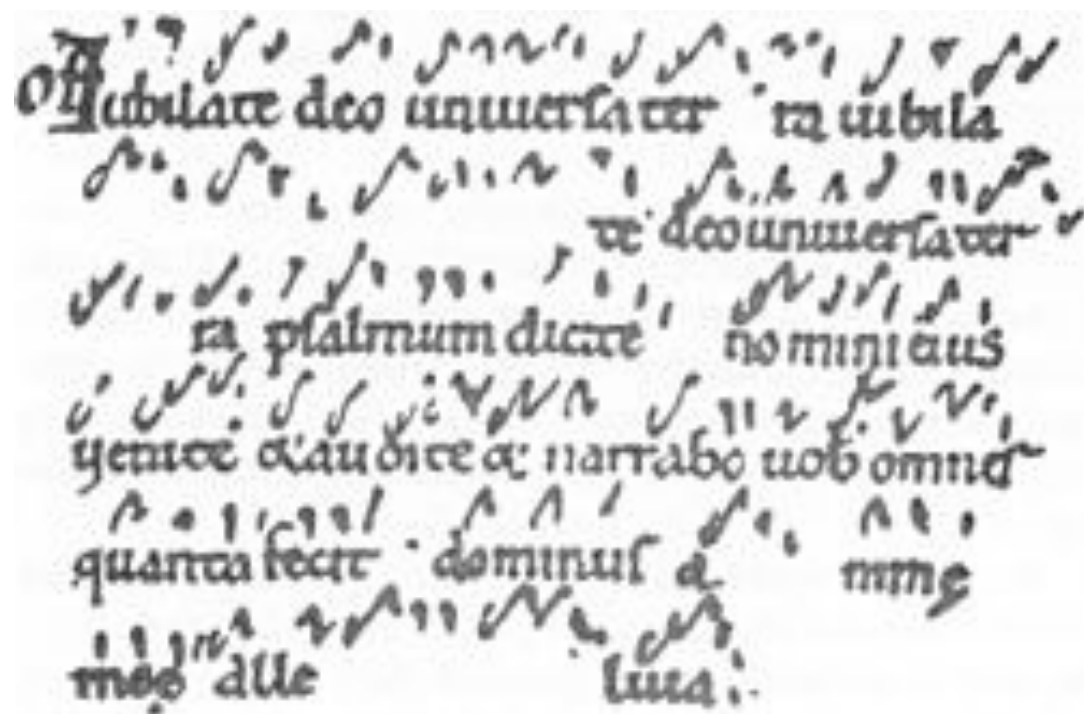 Iubilate deo uniuersa ter ra iubila
te deo uniuersa ter
ra psalmum dicite nomini eius
uenite & audite & narrabo uob omnis
quanta fecit dominus animę
męę alleluia